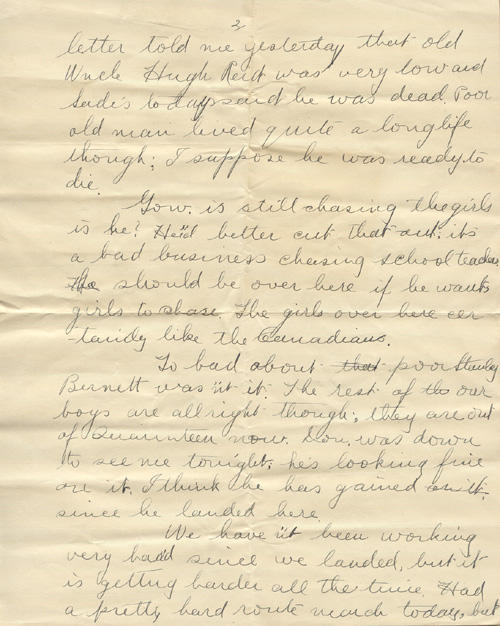 2
letter told me yesterday that old
Uncle Hugh Reid was very low and
Sadis today said he was dead. Poor
old man lived quite a long life
though; I suppose he was ready to
die.
Gow. is still chasing the girls
is he? He'd better cut that out. its
a bad business chasing school teachers,
He should be over here if he wants
girls to chase. The girls over here cer
-tainly like the Canadians.
To bad about that poor Stanley
Bernett was'nt it. The rest of the our
boys are all right though; they are out
of now. was down
to see me tonight; he's looking fine
on it. I think he has gained on it
since he landed here.
We have'nt been working
very hard since we landed, but it
is getting harder all the time. Had
a pretty hard route march today, but